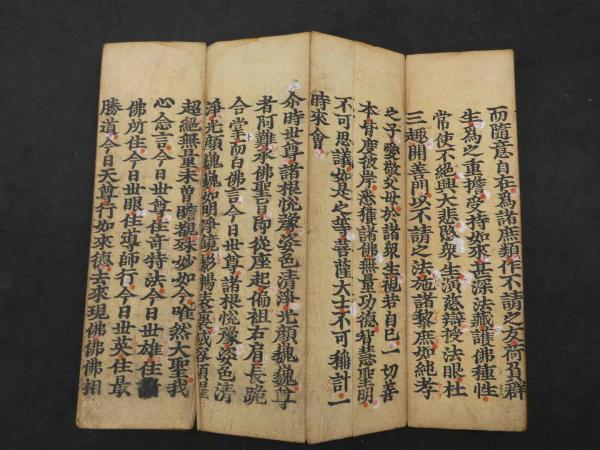 而隨意自在爲諸庶類作不請之友荷負群
生爲之重擔受持如來甚深法藏護佛種性
常使不絕興大悲愍衆生演慈辯授法眼杜
三趣開善門以不請之法施諸黎庶如純孝
之子愛敬父母於諸衆生視若自己一切善
本皆度彼岸悉獲諸佛無量功德智慧聖明
不可思議如是之等菩薩大士不可稱計一
時來會
尒時世尊諸根悅豫姿色清淨光顏巍巍尊
者阿難承佛聖旨即從座起偏袒右肩長跪
合掌而白佛言今日世尊諸根悅豫姿色清
淨光顏巍巍如明淨鏡影暢表裏威容顯曜
超絕無量未曾瞻覩殊妙如今唯然大聖我
心念言今日世尊住奇特法今日世雄住
佛所住今日世眼住導師行今日世英住最
勝道今日天尊行如來德去來現佛佛佛相